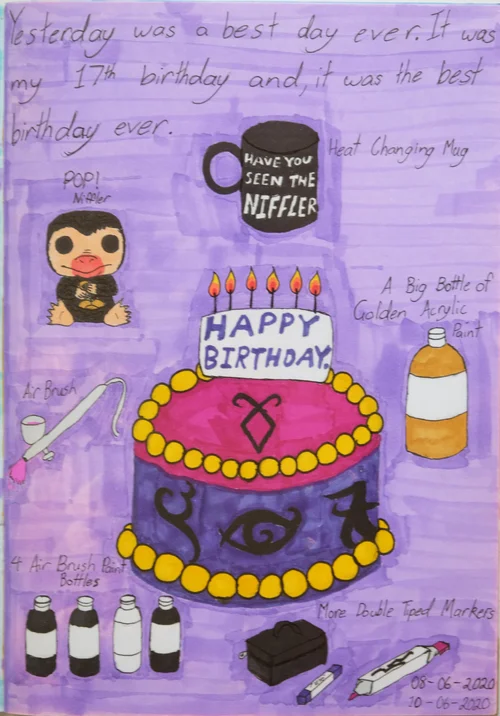 Yesterday was a best day ever. It was
my 17th birthday and, it was the best
birthday ever.
Heat Changing Mug
HAVE YOU
SEEN THE
NIFFLER
POP!
Niffler
A Big Bottle of
Golden Acrylic
Paint
HAPPY
BIRTHDAY.
Air Brush
4 Air Brush Paint
Bottles
More Double Tiped Markers
08-06-2020
10-06-2020